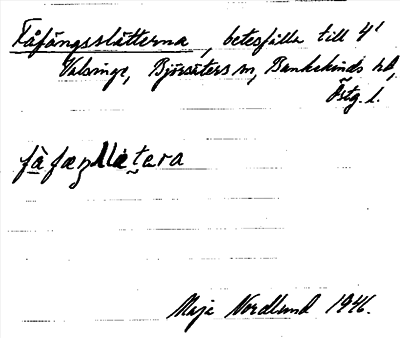 Fåfängsslätterna, betesfälla till 4¹
Valsinge, Björsäters sn, Bankekinds hd,
Östg. l.
Maja Nordlund 1946.